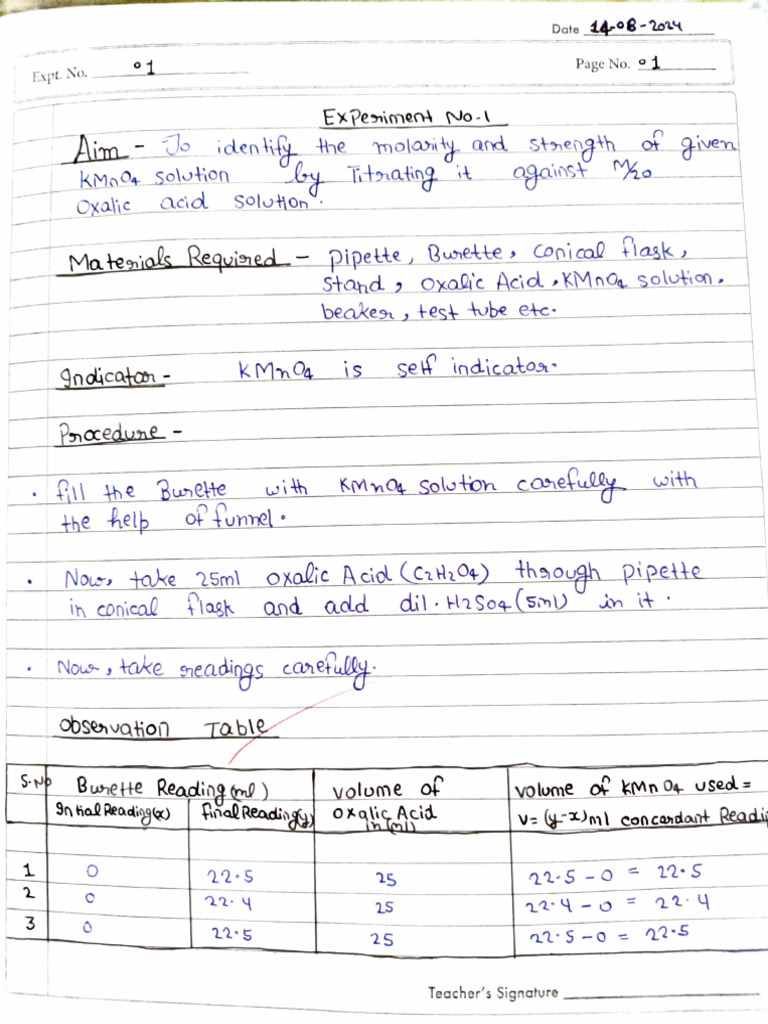 Date 14-08-2024
Expt. No. 01
Page No. 01
Experiment No.1
Aim - To identify the molarity and strength of given
KMnO4 solution by Titrating it against M/20
Oxalic acid solution.
Materials Required - Pipette, Burette, Conical flask,
Stand, Oxalic Acid, KMnO4 solution,
beaker, test tube etc.
Indicator - KMnO4 is self indicator.
Procedure -
• fill the Burette with KMnO4 solution carefully with
the help of funnel.
• Now, take 25ml oxalic Acid (C2H2O4) through pipette
in conical flask and add dil. H2SO4 (5ml) in it.
• Now, take readings carefully.
Observation Table
S.No Burette Reading(ml) Volume of Oxalic Acid in (ml) Volume of KMnO4 used =
Initial Reading(x) Final Reading(y) V= (y-x)ml concordant Readi
1 0 22.5 25 22.5 - 0 = 22.5
2 0 22.4 25 22.4 - 0 = 22.4
3 0 22.5 25 22.5 - 0 = 22.5
Teacher's Signature